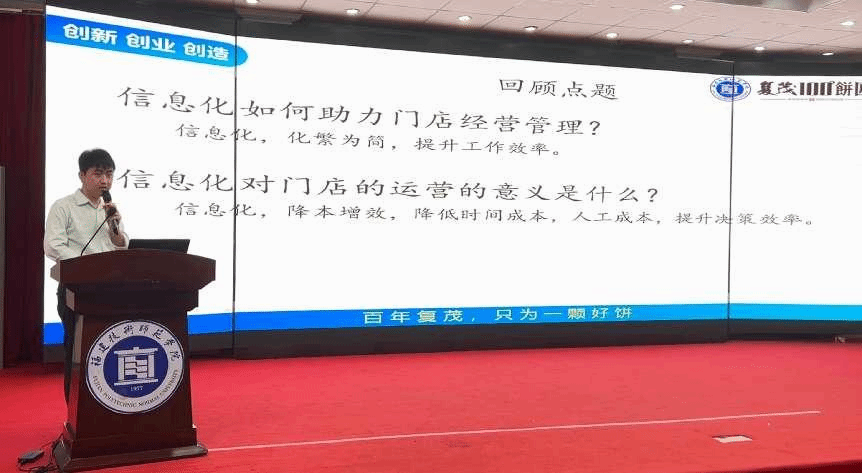 创新 创业 创造
回顾点题
复茂100餅
信息化如何助力门店经营管理？
信息化，化繁为简，提升工作效率。
信息化对门店的运营的意义是什么？
信息化，降本增效，降低时间成本，人工成本，提升决策效率。
百年复茂，只为一颗好饼
福建技術師范学院
FUJIAN POLYTECHNIC NORMAL UNIVERSITY
1977